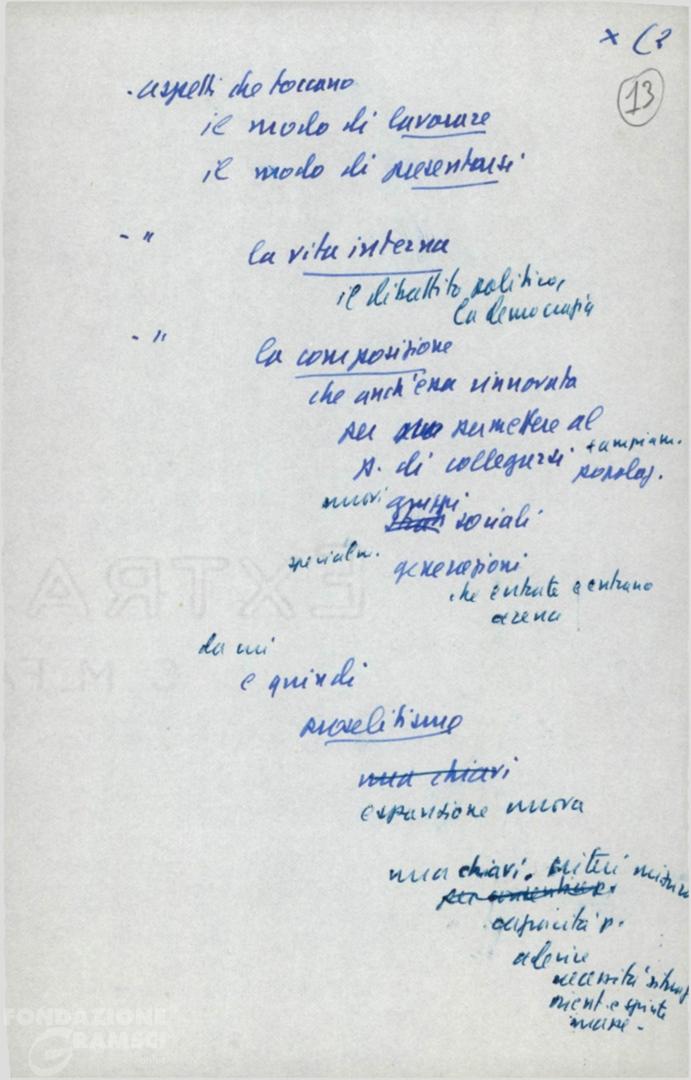 × (2
13
- aspetti che toccano
il modo di lavorare
il modo di presentarsi
- "
la vita interna
il dibattito politico,
la democrazia
- "
la composizione
che anch'essa rinnovata
per permettere al
p. di collegarsi + ampiam.
popolaz.
nuovi gruppi
sociali
specialm. generazioni
che entrate e entrano
arena
da cui
e quindi
proselitismo
una chiavi
espansione nuova
una chiavi. criteri misura
capacità p.
aderire
necessità situaz
orient. e spinte
masse -
EXTRA
FONDAZIONE
GRAMSCI